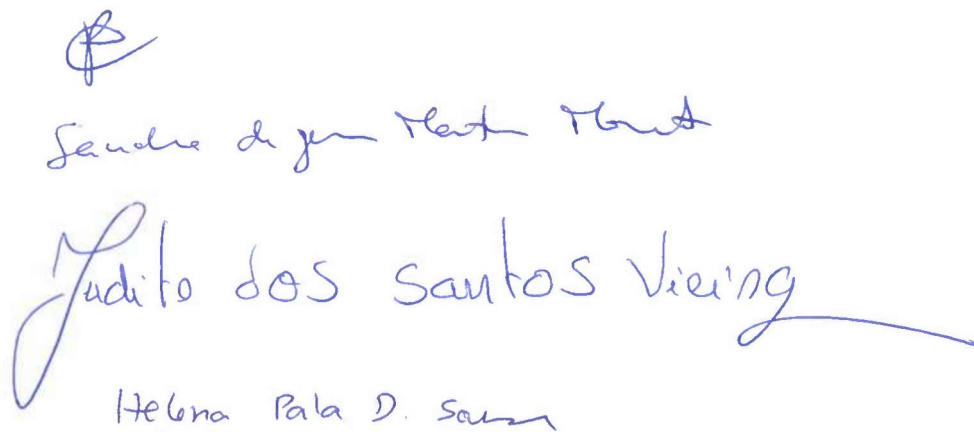 Sandra de Jesus Martins
Judite dos Santos Vieira
Helena Pala D. Sousa